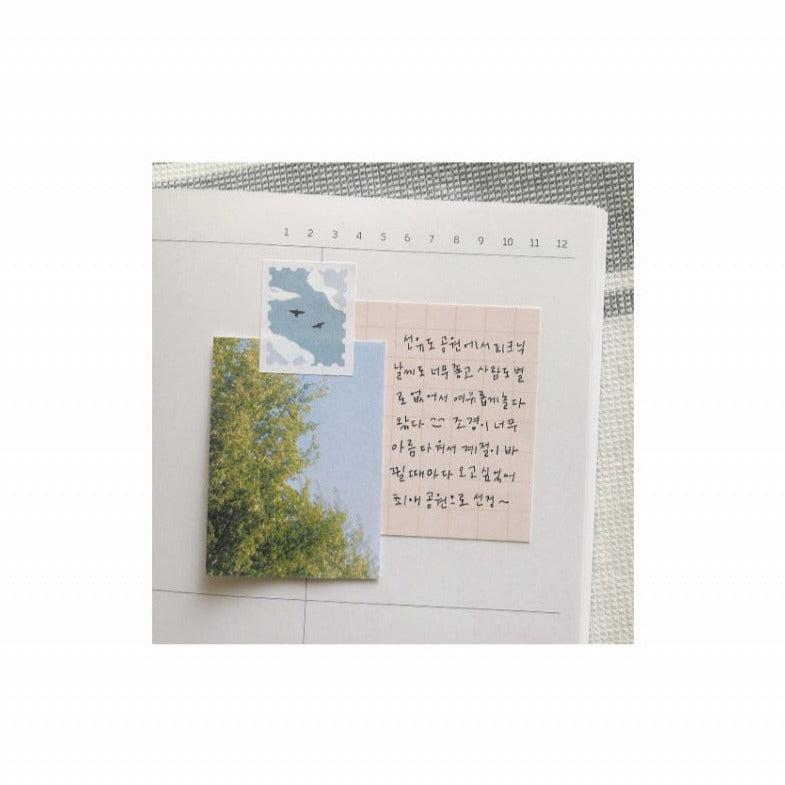 1 2 3 4 5 6 7 8 9 10 11 12
선유도 공원에서 피크닉
날씨도 너무 좋고 사람도 별
로 없어서 여유롭게 놀다
왔다 ^^ 조경이 너무
아름다워서 계절이 바
뀔때마다 오고싶었어
최애 공원으로 선정~